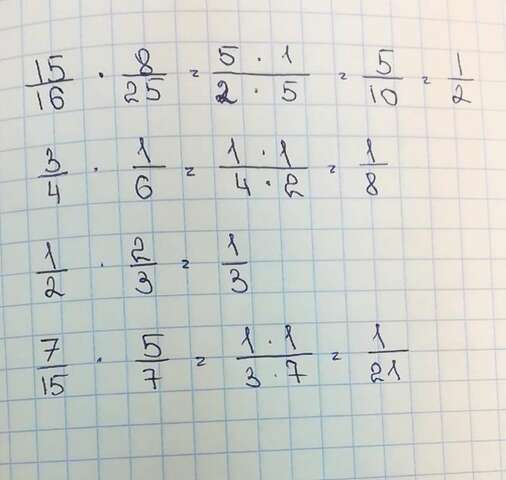 15/16 · 8/25 = 5 · 1/2 · 5 = 5/10 = 1/2
3/4 · 1/6 = 1 · 1/4 · 2 = 1/8
1/2 · 2/3 = 1/3
7/15 · 5/7 = 1 · 1/3 · 7 = 1/21